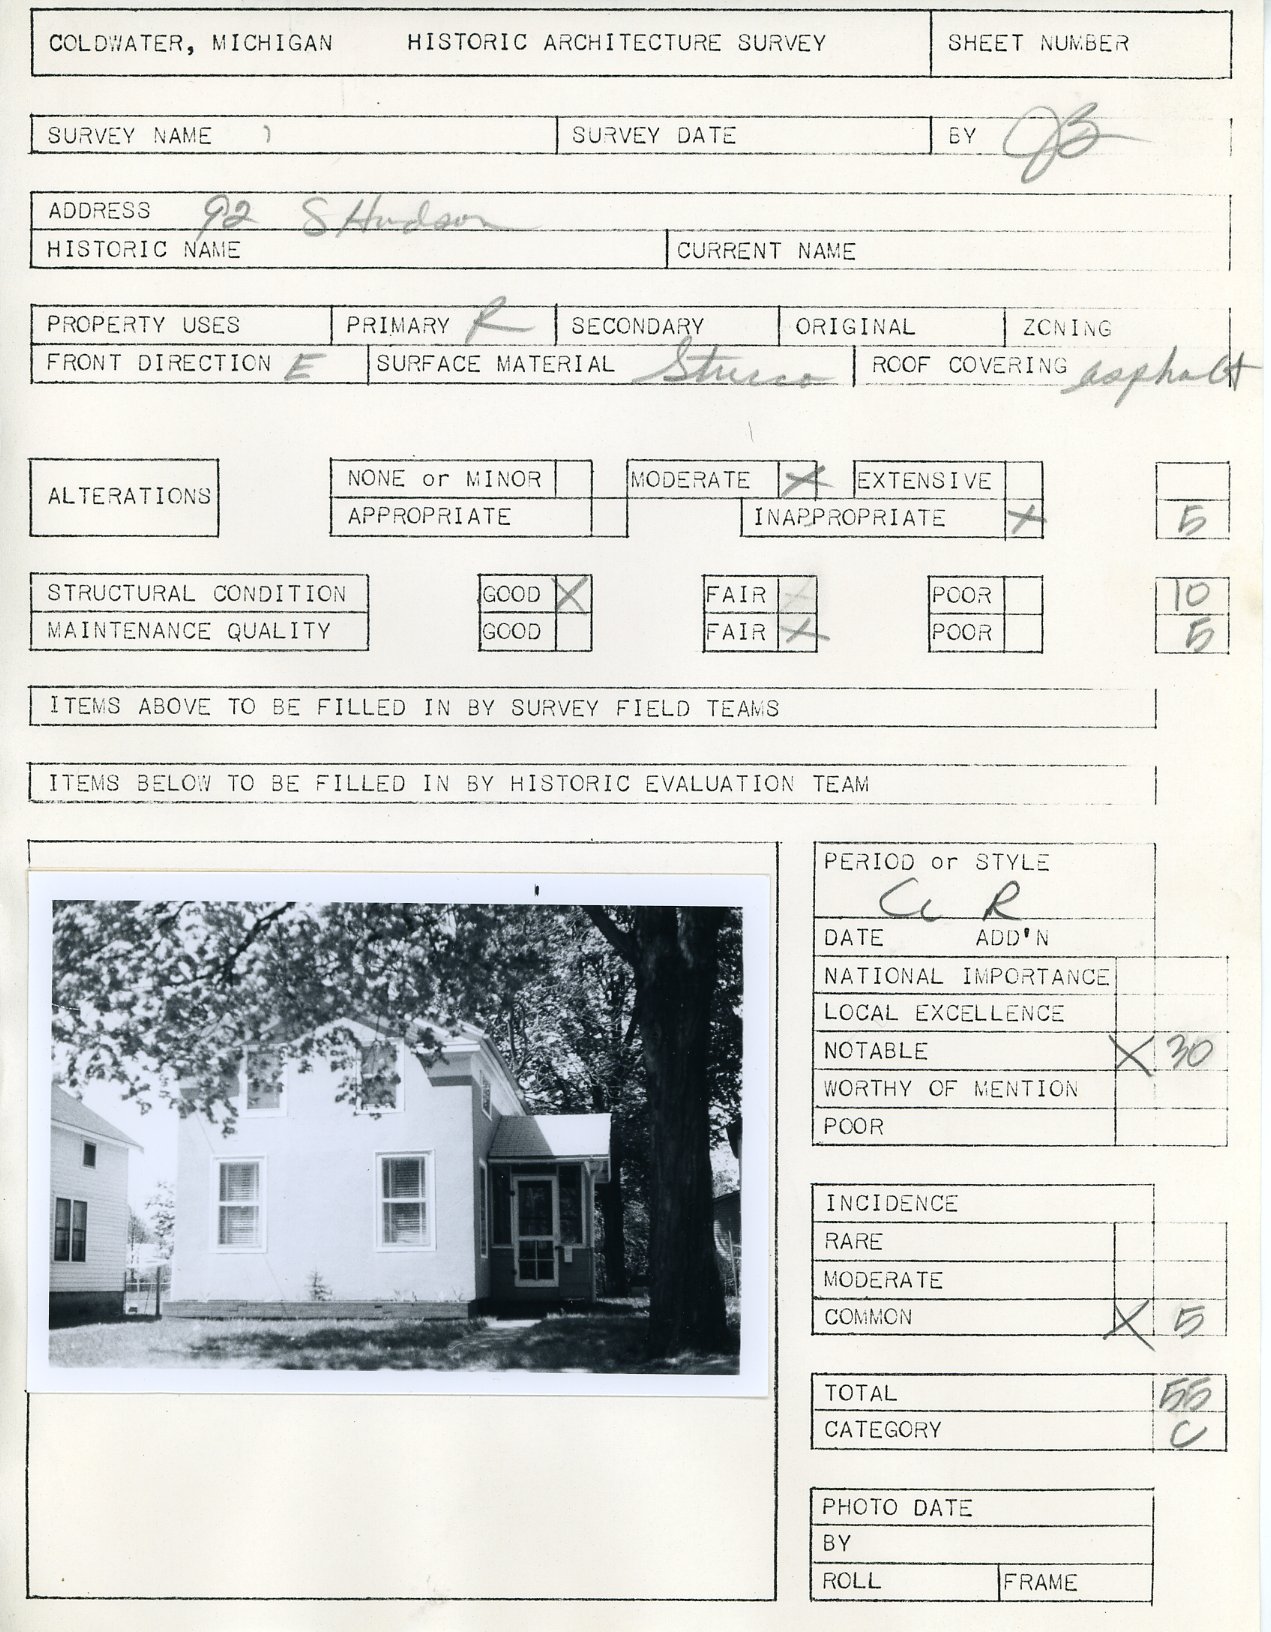 COLDWATER, MICHIGAN HISTORIC ARCHITECTURE SURVEY SHEET NUMBER
SURVEY NAME SURVEY DATE BY JB
ADDRESS 92 S Hudson
HISTORIC NAME CURRENT NAME
PROPERTY USES PRIMARY R SECONDARY ORIGINAL ZONING
FRONT DIRECTION E SURFACE MATERIAL Stucco ROOF COVERING asphalt
ALTERATIONS
NONE or MINOR MODERATE X EXTENSIVE
APPROPRIATE INAPPROPRIATE X 5
STRUCTURAL CONDITION GOOD X FAIR POOR 10
MAINTENANCE QUALITY GOOD FAIR X POOR 5
ITEMS ABOVE TO BE FILLED IN BY SURVEY FIELD TEAMS
ITEMS BELOW TO BE FILLED IN BY HISTORIC EVALUATION TEAM
PERIOD or STYLE
R
DATE ADD'N
NATIONAL IMPORTANCE
LOCAL EXCELLENCE
NOTABLE X 30
WORTHY OF MENTION
POOR
INCIDENCE
RARE
MODERATE
COMMON X 5
TOTAL 55
CATEGORY C
PHOTO DATE
BY
ROLL FRAME